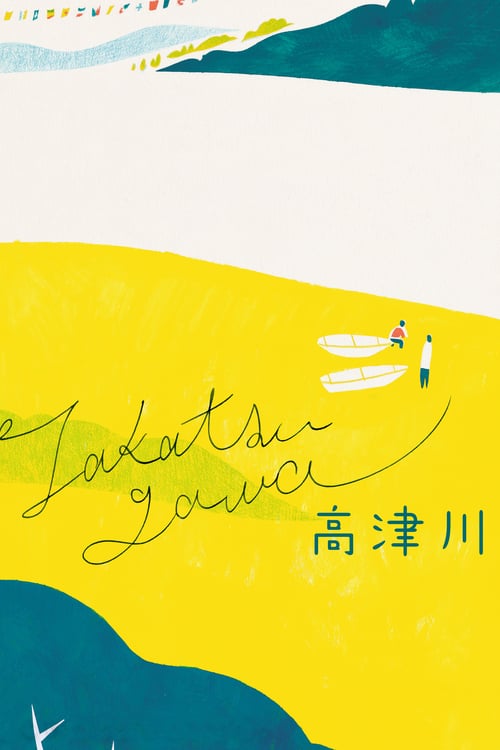 Takatsu
gawa
高津川